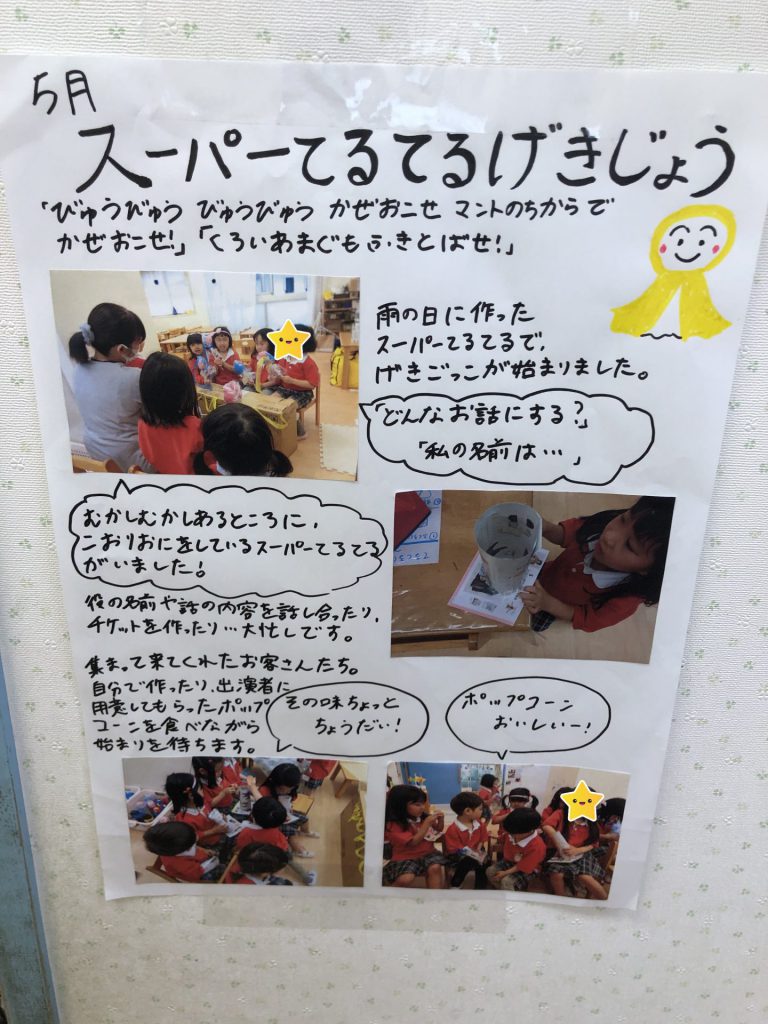 5月
スーパーてるてるげきじょう
「びゅうびゅう びゅうびゅう かぜおこせ マントのちからで
かぜおこせ!」「くろいあまぐもふきとばせ!」
雨の日に作った
スーパーてるてるで、
げきごっこが始まりました。
「どんなお話にする?」
「私の名前は…」
むかしむかしあるところに、
こおりおにをしているスーパーてるてる
がいました!
役の名前や話の内容を話し合ったり、
チケットを作ったり…大忙しです。
集まって来てくれたお客さんたち。
自分で作ったり、出演者に
用意してもらったポップ
コーンを食べながら
始まりを待ちます。
その味ちょっと
ちょうだい!
ポップコーン
おいしいー!